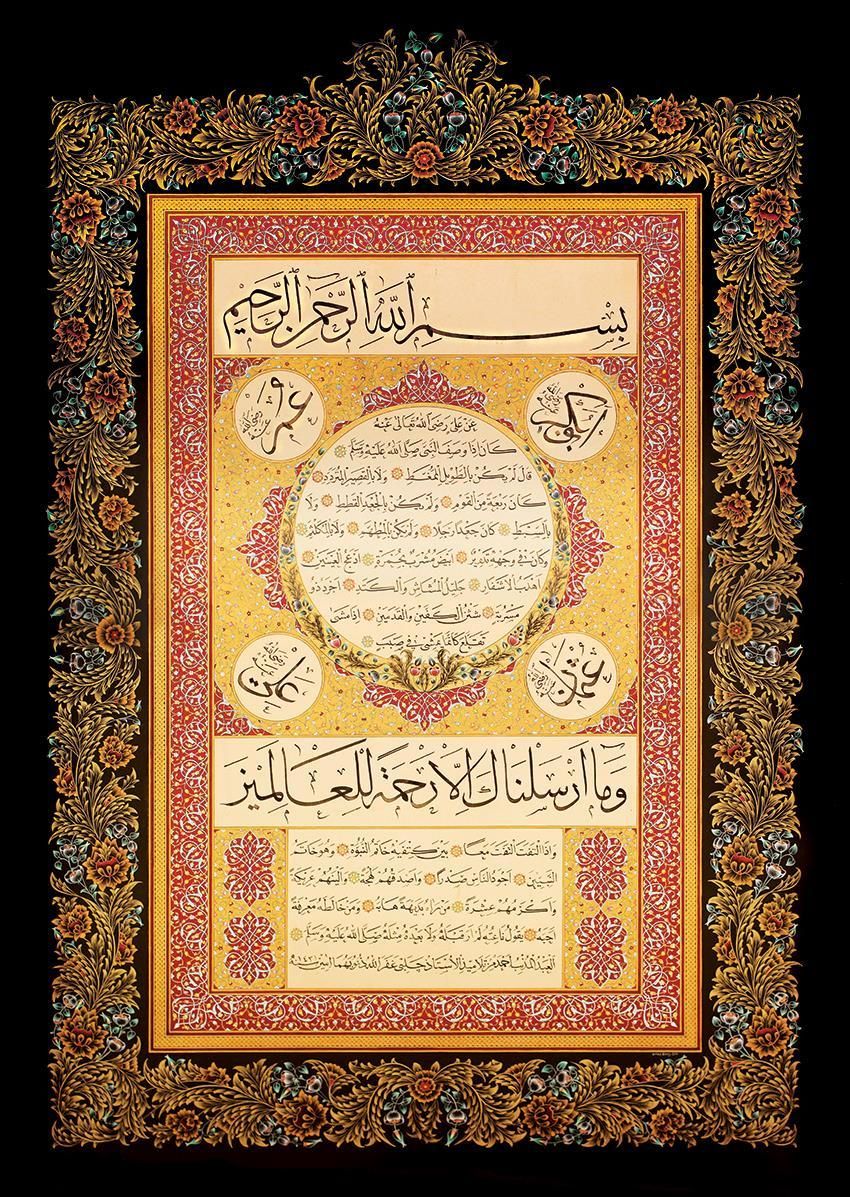 بِسْمِ ٱللَّهِ ٱلرَّحْمَٰنِ ٱلرَّحِيمِ
ابوبكر رضي الله عنه
عمر رضي الله عنه
عن علي رضي الله تعالى عنه
كان اذا وصف النبي صلى الله عليه وسلم
قال لم يكن بالطويل الممغط ولا بالقصير المتردد
كان ربعة من القوم ولم يكن بالجعد القطط ولا
بالسبط كان جعدا رجلا ولم يكن بالمطهم ولا بالمكلثم
وكان في وجهه تدوير ابيض مشرب بحمرة ادعج العينين
اهدب الاشفار جليل المشاش والكتد اجرد ذو
مسربة شثن الكفين والقدمين اذا مشى
تقلع كأنما يمشي في صبب
عثمان رضي الله عنه
علي رضي الله عنه
وما ارسلناك الا رحمة للعالمين
واذا التفت التفت معا بين كتفيه خاتم النبوة وهو خاتم
النبيين اجود الناس صدرا واصدقهم لهجة والينهم عريكة
واكرمهم عشرة من رآه بديهة هابه ومن خالطه معرفة
احبه يقول ناعته لم ار قبله ولا بعده مثله صلى الله عليه وسلم
من تلاميذ الاستاذ چلبي غفر الله ذنوبهما امين